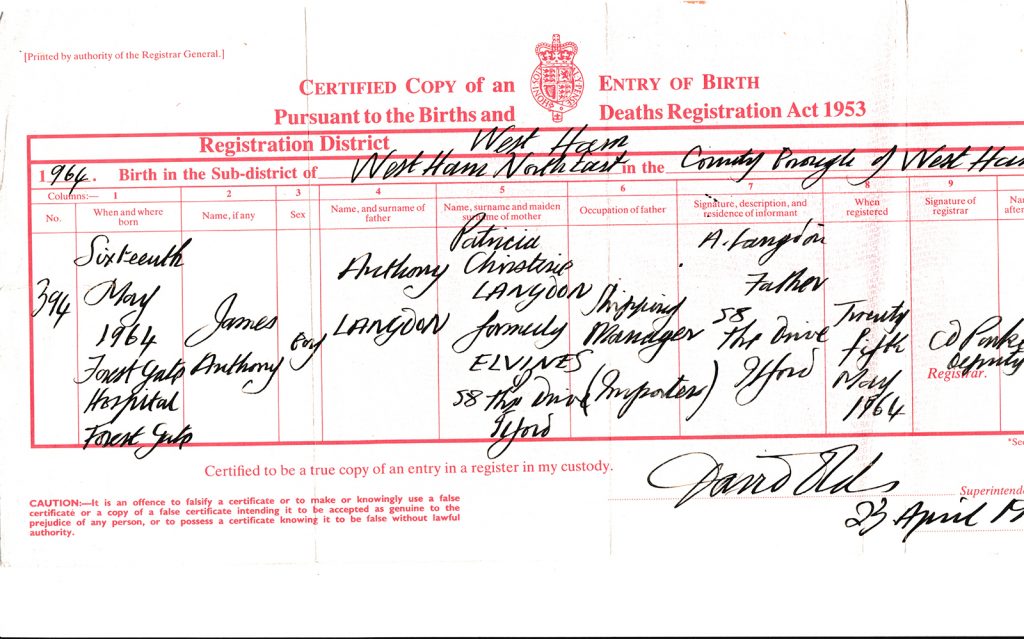 [Printed by authority of the Registrar General.]
CERTIFIED COPY of an ENTRY OF BIRTH
Pursuant to the Births and Deaths Registration Act 1953
HONI SOIT
Registration District West Ham
1964. Birth in the Sub-district of West Ham North East in the County Borough of West Ham
Columns:— 1 2 3 4 5 6 7 8 9
No.
When and where
born
Name, if any
Sex
Name, and surname of
father
Name, surname and maiden
surname of mother
Occupation of father
Signature, description, and
residence of informant
When
registered
Signature of
registrar
394
Sixteenth
May
1964
Forest Gate
Hospital
Forest Gate
James
Anthony
Boy
Anthony
LANGDON
Patricia
Christine
LANGDON
formerly
ELVINES
of
58 The Drive
Ilford
Shipping
Manager
(Importers)
A. Langdon
Father
58
The Drive
Ilford
Twenty
fifth
May
1964
Deputy
Registrar.
Certified to be a true copy of an entry in a register in my custody.
CAUTION:—It is an offence to falsify a certificate or to make or knowingly use a false
certificate or a copy of a false certificate intending it to be accepted as genuine to the
prejudice of any person, or to possess a certificate knowing it to be false without lawful
authority.
David
Superintende
23 April 19